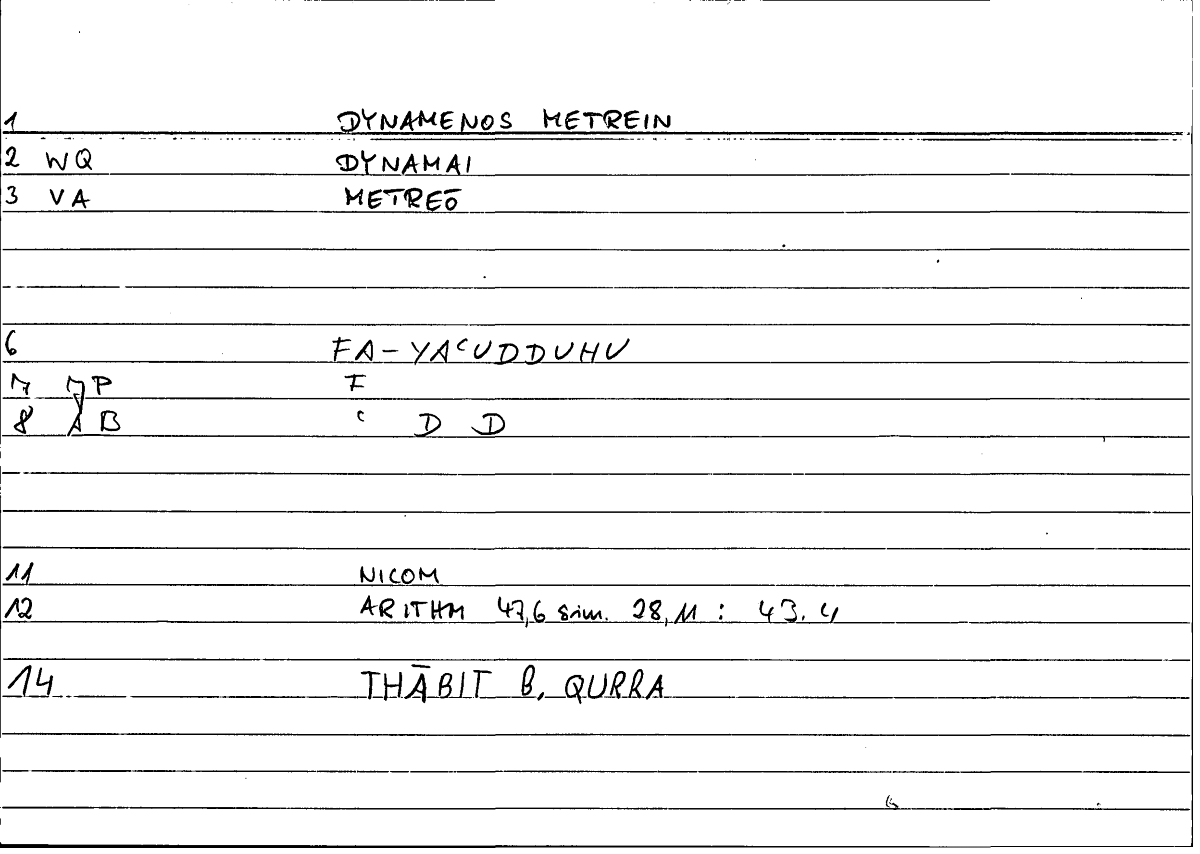 1 DYNAMENOS METREIN
2 WQ DYNAMAI
3 VA METREŌ
6 FA-YAᶜUDDUHU
7 7P F
8 AB ᶜ D D
11 NICOM
12 ARITHM 47,6 sim. 28,11 : 43.4
14 THĀBIT B. QURRA